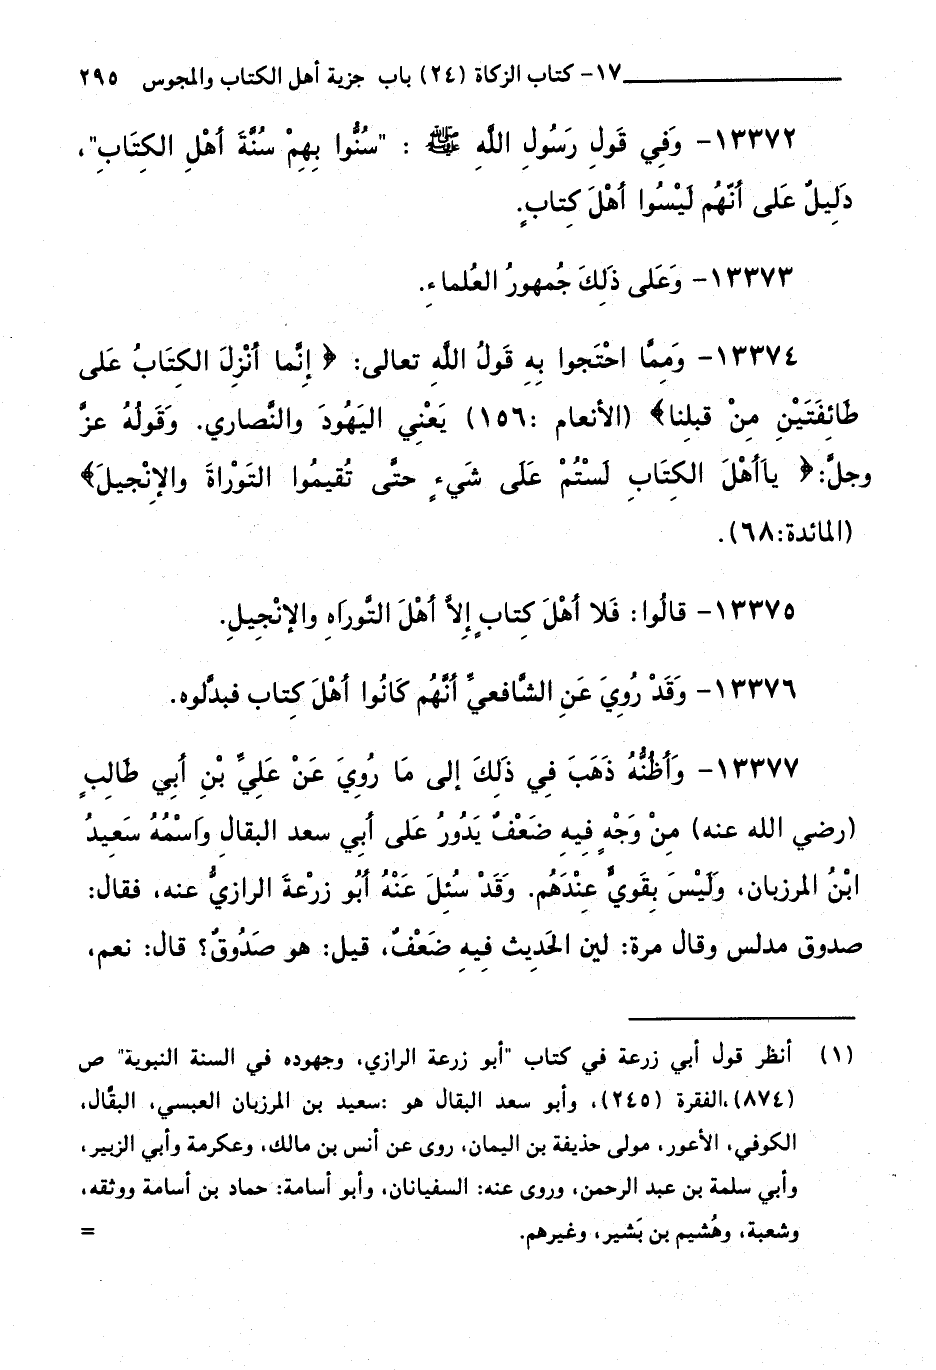 ١٧- كتاب الزكاة (٢٤) باب جزية أهل الكتاب والمجوس ٢٩٥
١٣٣٧٢- وَفِي قَولِ رَسُولِ اللَّهِ ﷺ : "سُنُّوا بِهِمْ سُنَّةَ أَهْلِ الكِتَابِ"،
دَلِيلٌ عَلى أَنَّهُم لَيْسُوا أَهْلَ كِتابٍ.
١٣٣٧٣- وَعَلى ذَلِكَ جُمهورُ العُلماءِ.
١٣٣٧٤- وَمِمَّا احْتَجوا بِهِ قَولُ اللَّهِ تعالى: ﴿ إنَّما أُنْزِلَ الكِتَابُ عَلى
طَائِفَتَيْنِ مِنْ قبلِنا﴾ (الأنعام :١٥٦) يَعْنِي اليَهُودَ والنَّصاري. وَقَولُهُ عزَّ
وجلَّ:﴿ ياأَهْلَ الكِتَابِ لَسْتُمْ عَلَى شَيءٍ حتَّى تُقيمُوا التَوْراةَ والإنْجيلَ﴾
(المائدة:٦٨).
١٣٣٧٥- قالُوا: فَلا أهْلَ كِتابٍ إلاَّ أهْلَ التَّوراَهِ والإنْجِيلِ.
١٣٣٧٦- وَقَدْ رُوِيَ عَنِ الشَّافعيِّ أنَّهُم كَانُوا أهْلَ كِتاب فبدَّلوه.
١٣٣٧٧- وَأظُنُّهُ ذَهَبَ فِي ذَلِكَ إلى مَا رُوِيَ عَنْ عَلِيِّ بْنِ أَبي طَالِبٍ
(رضي الله عنه) مِنْ وَجْهٍ فِيهِ ضَعْفٌ يَدُورُ عَلى أبي سعد البقالِ وَاسْمُهُ سَعِيدُ
ابْنُ المرزبان، وَلَيْسَ بِقَويٍّ عِنْدَهُم. وَقَدْ سُئِلَ عَنْهُ أبُو زرْعةَ الرازيُّ عنه، فقال:
صدوق مدلس وقال مرة: لين الحَدِيث فِيهِ ضَعْفٌ، قيل: هو صَدُوقٌ؟ قال: نعم،
(١) أنظر قول أبي زرعة في كتاب "أبو زرعة الرازي، وجهوده في السنة النبوية" ص
(٨٧٤)،الفقرة (٢٤٥)، وأبو سعد البقال هو :سعيد بن المرزبان العبسي، البقَّال،
الكوفي، الأعور، مولى حذيفة بن اليمان، روى عن أنس بن مالك، وعكرمة وأبي الزبير،
وأبي سلمة بن عبد الرحمن، وروى عنه: السفيانان، وأبو أسامة: حماد بن أسامة ووثقه،
وشعبة، وهُشيم بن بَشير، وغيرهم. =